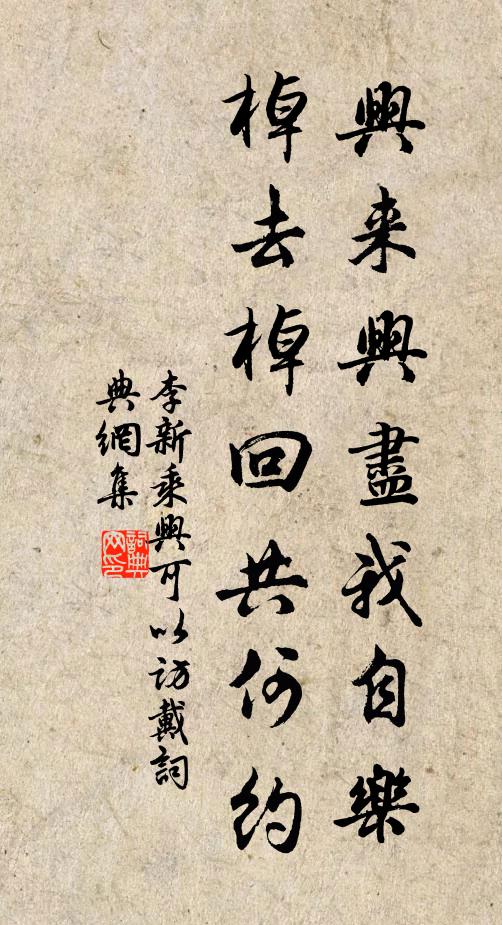 興来興盡我自樂
棹去棹回共何約
李新乘興可以訪戴詞
典網集
詞典
网印